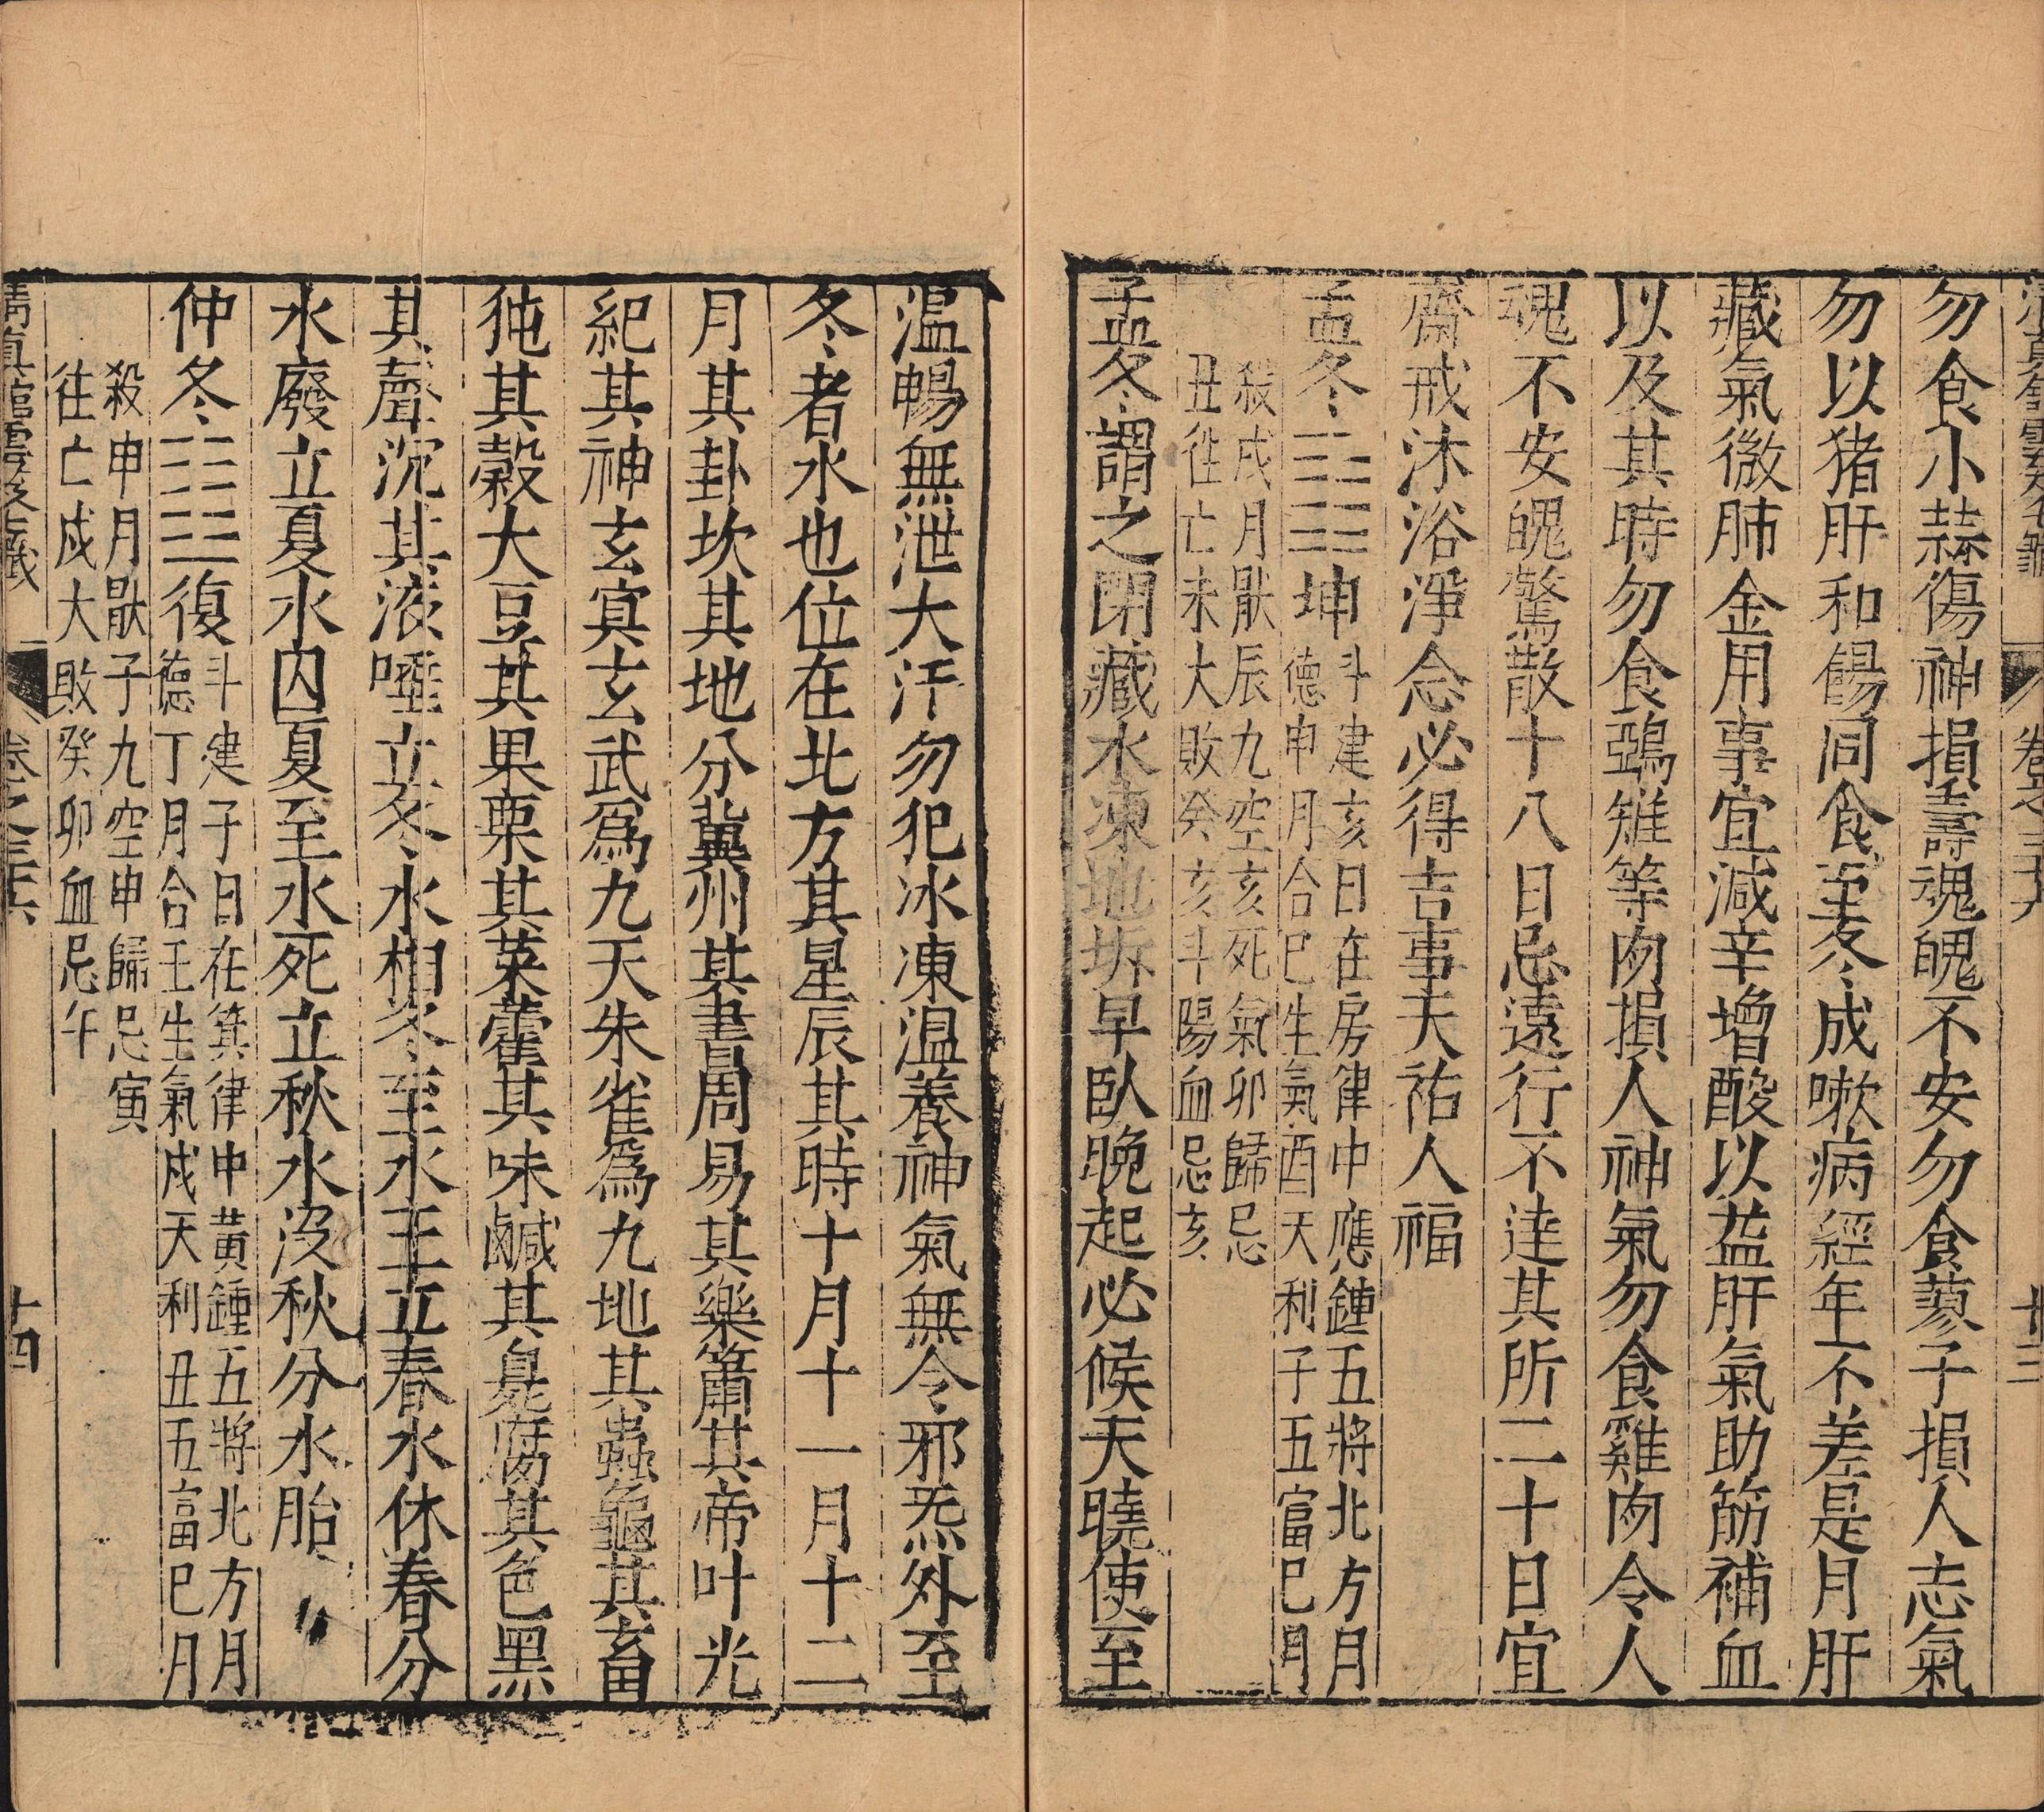 勿食小蒜傷神損壽魂魄不安勿食蓼子損人志氣
勿以猪肝和餳同食至冬成嗽病經年不差是月肝
藏氣微肺金用事宜減辛增酸以益肝氣助筋補血
以及其時勿食鵶雉等肉損人神氣勿食雞肉令人
魂不安魄驚散十八日忌遠行不達其所二十日宜
齋戒沐浴淨念必得吉事天祐人福
孟冬坤
斗建亥日在房律中應鍾五將北方月
德申月合巳生氣酉天利子五富巳月
殺戌月猒辰九空亥死氣卯歸忌
丑徃亡未大敗癸亥斗陽血忌亥
孟冬謂之閉藏水凍地坼早臥晚起必候天曉使至
溫暢無泄大汗勿犯冰凍温養神氣無令邪炁外至
冬者水也位在北方其星辰其時十月十一月十二
月其卦坎其地分冀州其書周易其樂簫其帝叶光
紀其神玄寅玄武爲九天朱雀爲九地其蟲龜其畜
㹠其穀大豆其果栗其菜藿其味鹹其臭腐其色黑
其聲沉其液唾立冬水相冬至水王立春水休春分
水廢立夏水囚夏至水死立秋水沒秋分水胎
仲冬復
斗建子日在箕律中黃鍾五將北方月
德丁月合壬生氣戌天利丑五富巳月
殺申月猒子九空申歸忌寅
往亡戌大敗癸卯血忌午
卷之三十六
十四